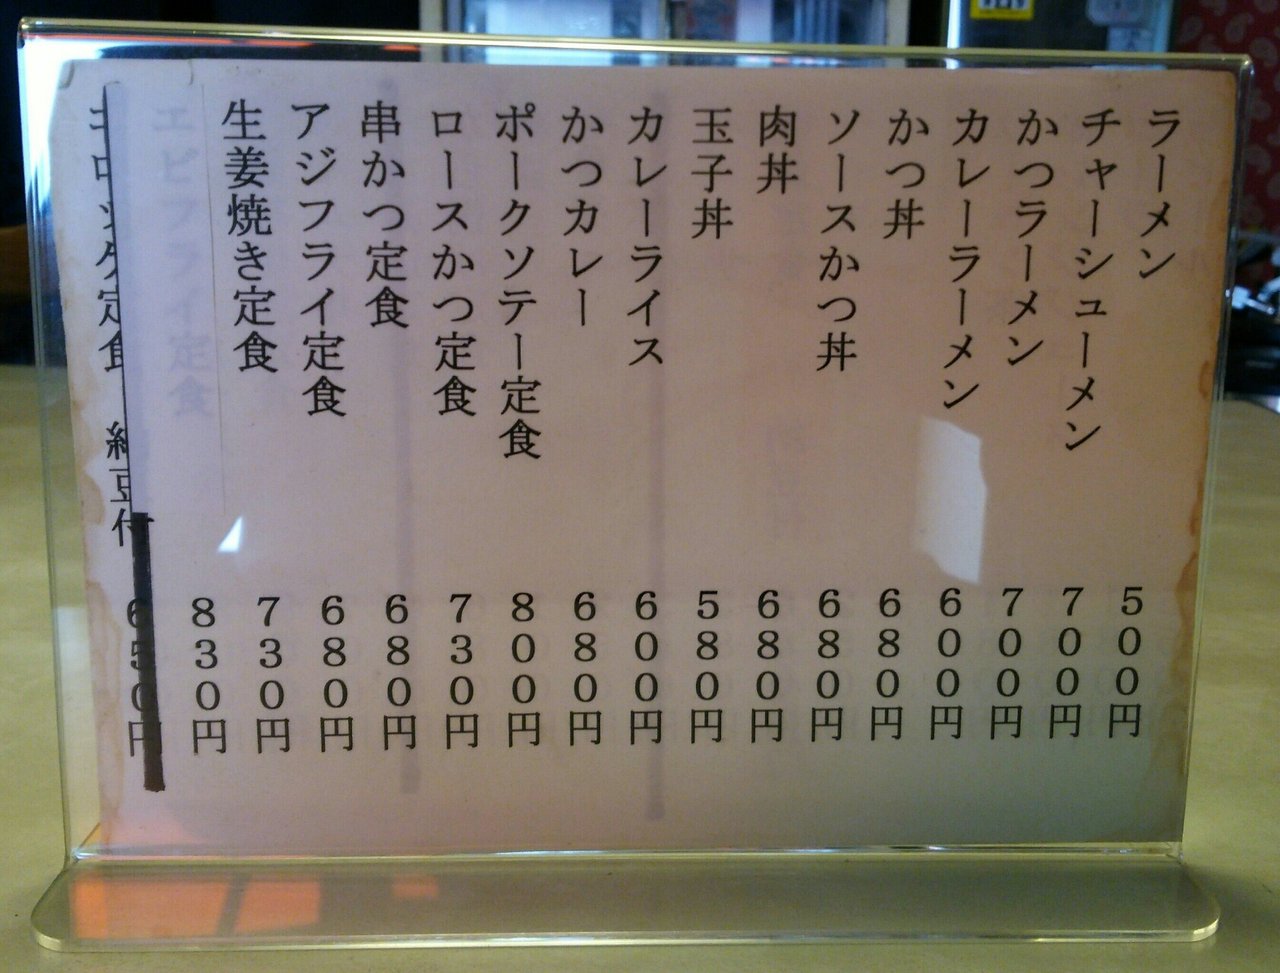 ラーメン 500円
チャーシューメン 700円
かつラーメン 700円
カレーラーメン 600円
かつ丼 680円
ソースかつ丼 680円
肉丼 680円
玉子丼 580円
カレーライス 600円
かつカレー 680円
ポークソテー定食 800円
ロースかつ定食 730円
串かつ定食 680円
アジフライ定食 680円
生姜焼き定食 730円
エビフライ定食 830円
コロッケ定食 納豆付 650円